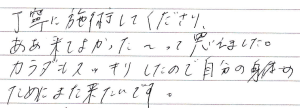 丁寧に施術してくださり、
ああ来てよかった〜って思えました。
カラダもスッキリしたので自分の身体の
ためにまた来たいです。